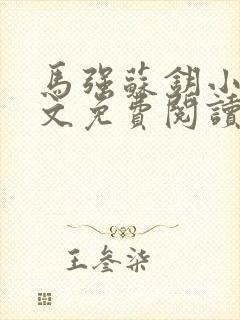 馬強蘇鈅小
文免費閱讀
王叄柒